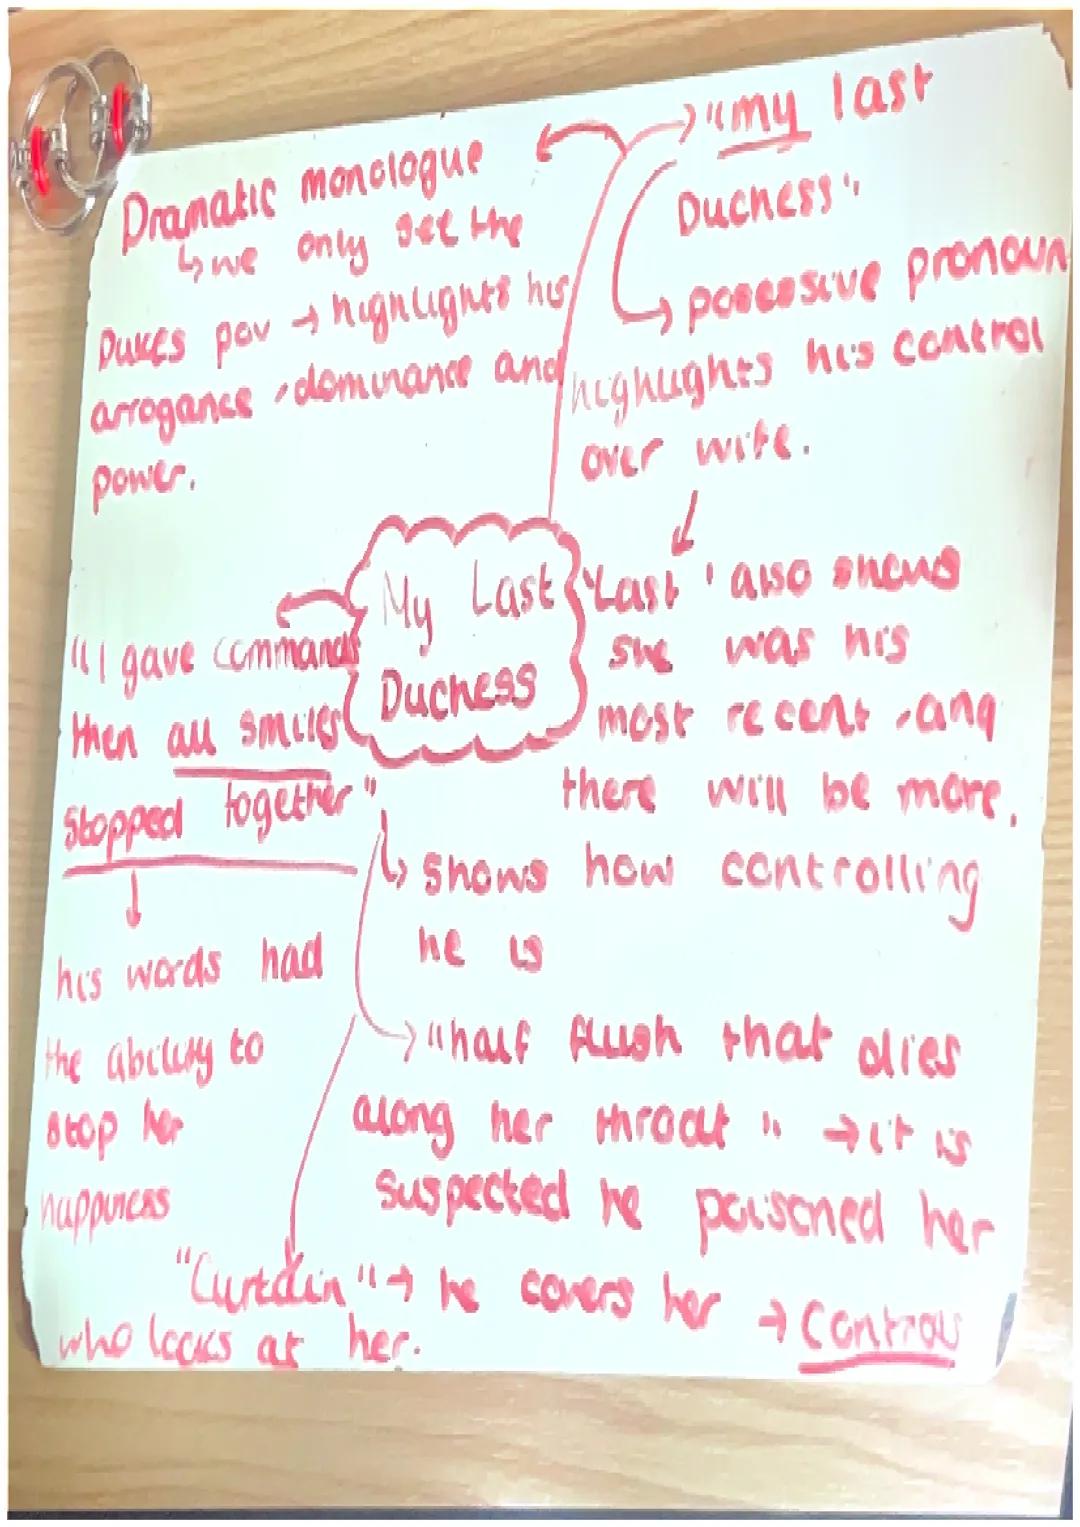 Dramatic monologue
↳ we only see the
Dukes pov → highlights his
arrogance, dominance and
power.
→ "my last
Duchess".
→ possesive pronoun
highlights his control
over wife.
↓
'Last' also shows
she was his
most recent, and
there will be more.
My Last
Duchess
"I gave commands
then all smiles
stopped together"
↓
his words had
the ability to
stop her
happiness
↳ shows how controlling
he is
→ "half flush that dies
along her throat" → it is
suspected he poisoned her
"Curtain" → he covers her → Controls
who looks at her.